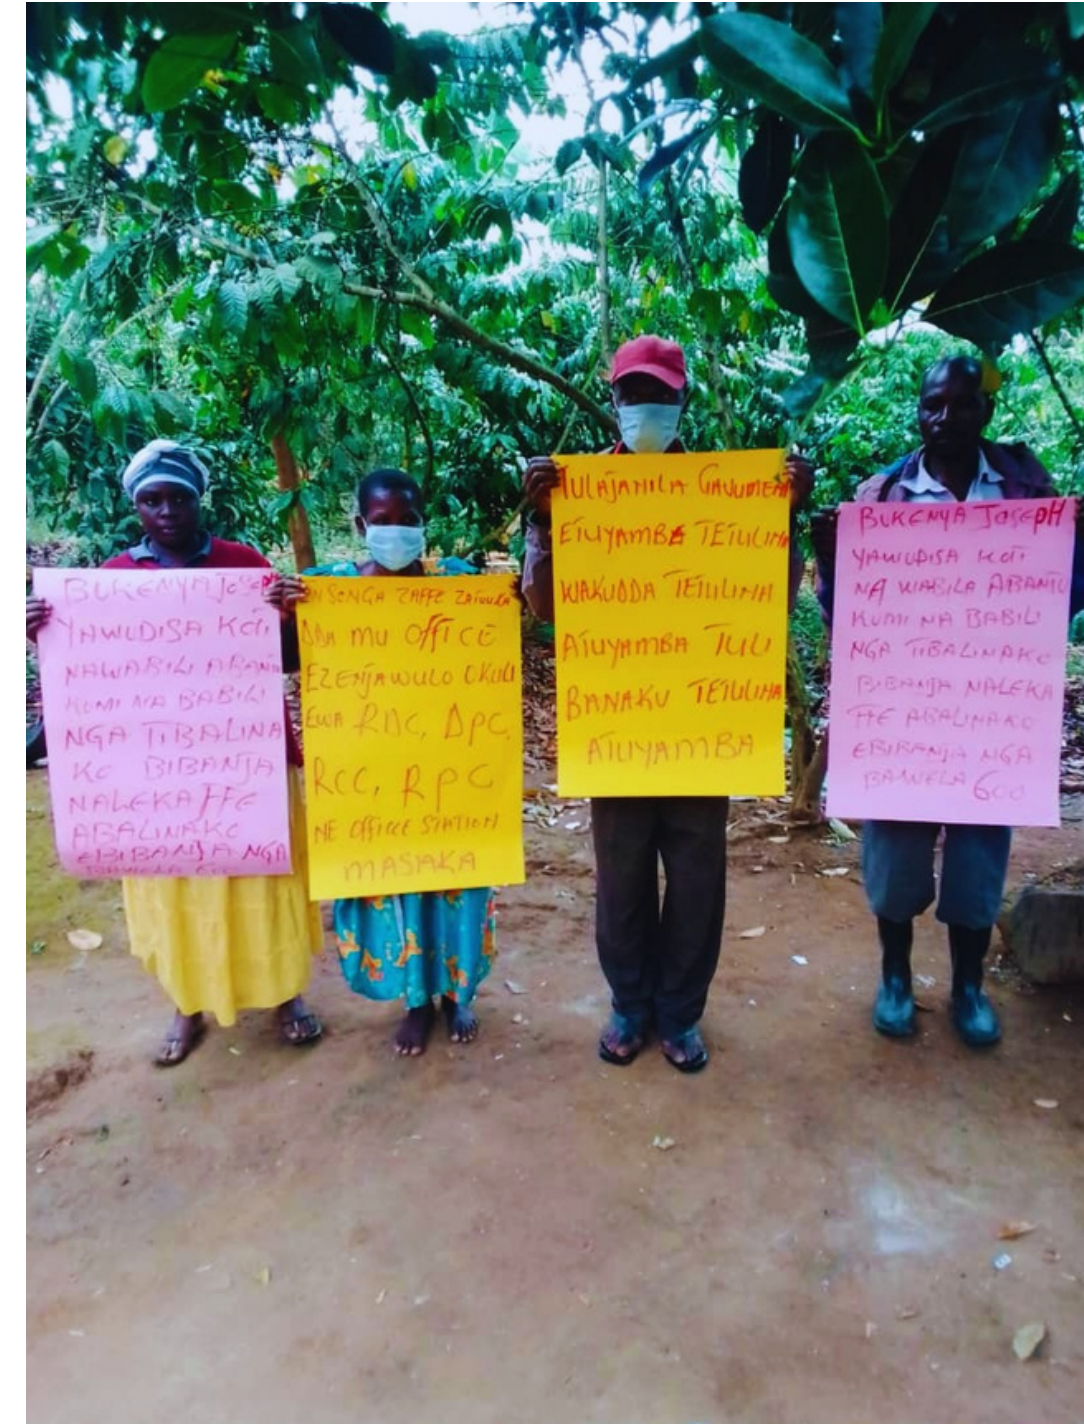 BUKENYA JOSEPH
YAWUDISA KOTI
NAWABILI ABANTU
KUMI NA BABILI
NGA TIBALINA
KO BIBANJA
NALEKA FFE
ABALINAKO
EBIBANJA NGA
ENSONGA ZAFFE
DDA MU OFFICE
EZENJAWULO OKULI
EWA RDC, DPC,
RCC, RPC
NE OFFICE STATION
MASAKA
TULAJANILA GAVUMENTI
ETUYAMBE TETULINA
WAKUDDA TETULINA
ATUYAMBA TULI
BANAKU TETULINA
ATUYAMBA
BUKENYA JOSEPH
YAWUDISA KOTI
NA WABILA ABANTU
KUMI NA BABILI
NGA TIBALINAKO
BIBANJA NALEKA
FFE ABALINAKO
EBIBANJA NGA
BAWELA 600